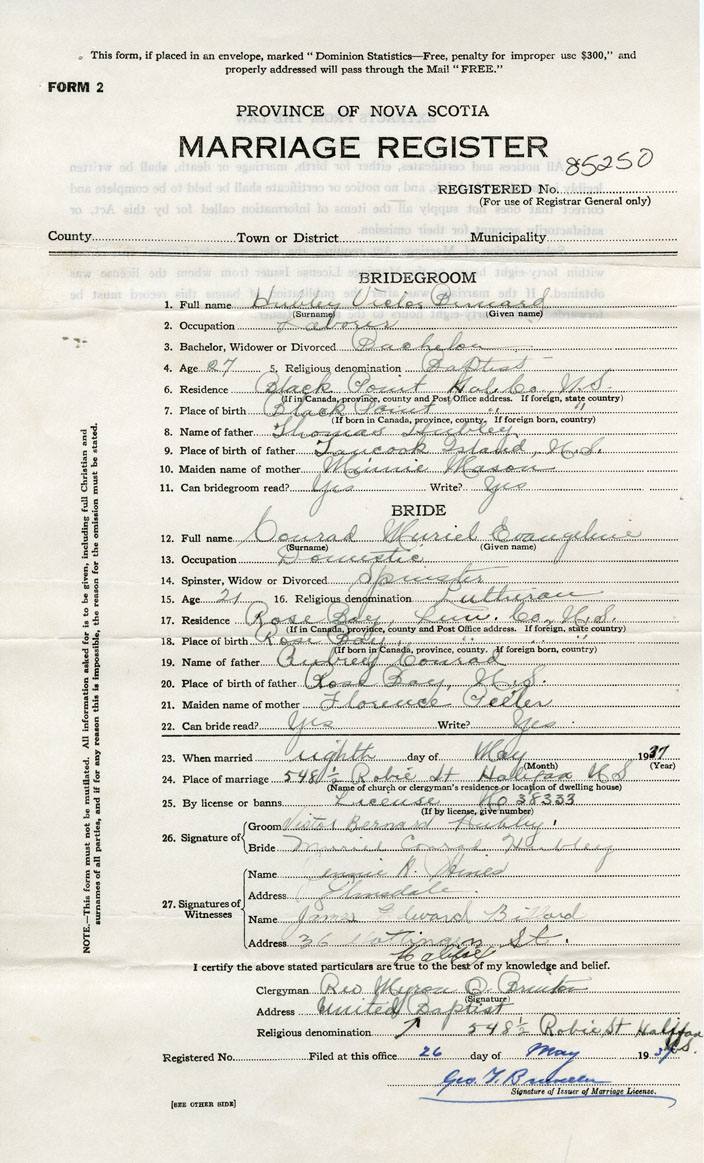 This form, if placed in an envelope, marked "Dominion Statistics—Free, penalty for improper use $300," and
properly addressed will pass through the Mail "FREE."
FORM 2
PROVINCE OF NOVA SCOTIA
MARRIAGE REGISTER
85250
REGISTERED No.
(For use of Registrar General only)
County Town or District Municipality
BRIDEGROOM
1. Full name Hubley Victor Bernard
(Surname) (Given name)
2. Occupation Labourer
3. Bachelor, Widower or Divorced Bachelor
4. Age 27 5. Religious denomination Baptist
6. Residence Black Point Hal. Co. N.S.
(If in Canada, province, county and Post Office address. If foreign, state country)
7. Place of birth Black Point " "
(If born in Canada, province, county. If foreign born, country)
8. Name of father Thomas Hubley
9. Place of birth of father Tancook Island, N.S.
10. Maiden name of mother Minnie Mason
11. Can bridegroom read? Yes Write? Yes
BRIDE
12. Full name Conrad Muriel Evangeline
(Surname) (Given name)
13. Occupation Domestic
14. Spinster, Widow or Divorced Spinster
15. Age 21 16. Religious denomination Lutheran
17. Residence Rose Bay, Lun. Co. N.S.
(If in Canada, province, county and Post Office address. If foreign, state country)
18. Place of birth Rose Bay, " "
(If born in Canada, province, county. If foreign born, country)
19. Name of father Aubrey Conrad
20. Place of birth of father Rose Bay, N.S.
21. Maiden name of mother Florence
22. Can bride read? Yes Write? Yes
23. When married eighth day of May 1937
(Month) (Year)
24. Place of marriage 548 1/2 Robie St Halifax N S
(Name of church or clergyman's residence or location of dwelling house)
25. By license or banns License No 38333
(If by license, give number)
26. Signature of
Groom Victor Bernard Hubley
Bride Conrad Hubley
27. Signatures of Witnesses
Name R. Hines
Address Elmsdale
Name James Edward Billard
Address 36 St.
Halifax
I certify the above stated particulars are true to the best of my knowledge and belief.
Clergyman Rev Myron O. Brinton
(Signature)
Address United Baptist
Religious denomination 548 1/2 Robie St Halifax
N.S.
Registered No. Filed at this office 26 day of May 1937
Geo. T.
Signature of Issuer of Marriage License.
[SEE OTHER SIDE]
NOTE.—This form must not be mutilated. All information asked for is to be given, including full Christian and
surnames of all parties, and if for any reason this is impossible, the reason for the omission must be stated.